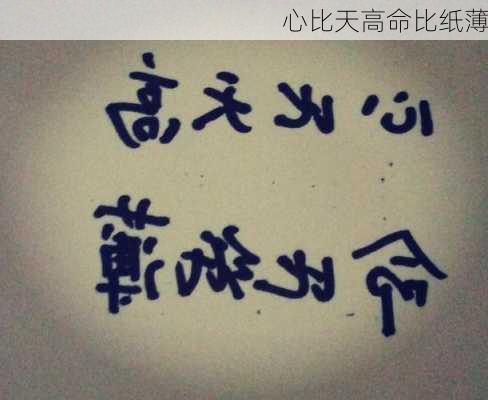 心比天高命比纸薄
心比天高
命比纸薄